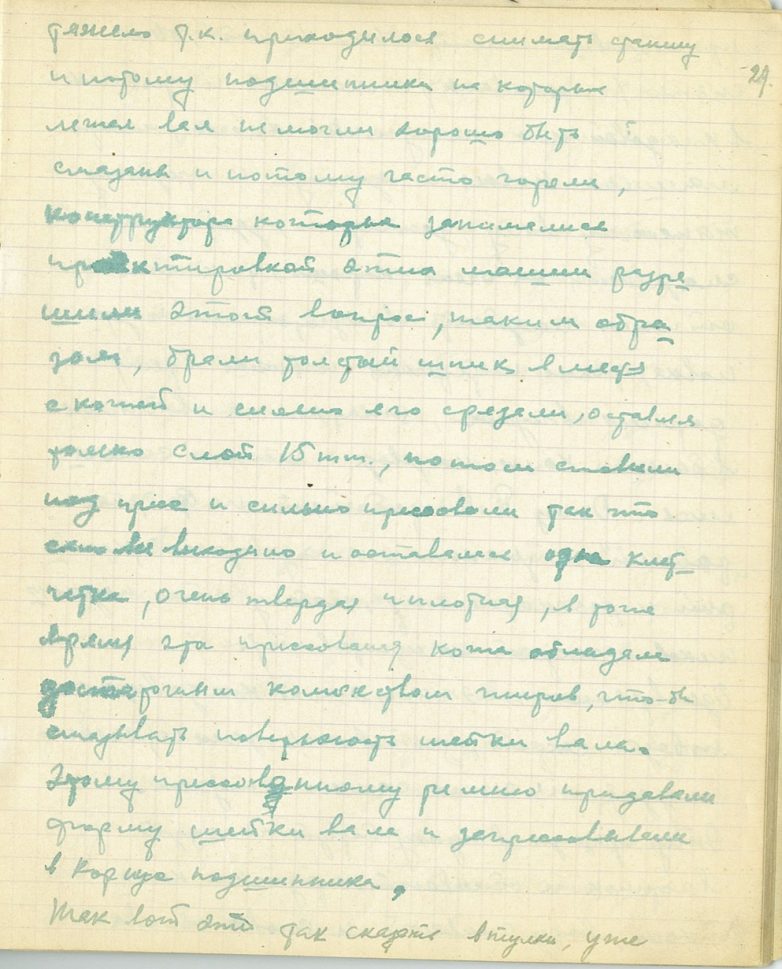 29.
тяжело т.к. приходилося снимать станину
и потому подшипники на которых
лежал вал не могли хорошо быть
смазаны и потому часто горели,
конструктора которые занималися
проектировкой этих машин разре
шили этот вопрос, таким обра-
зом, брали толстый шпик вместе
с кожей и сильно его срезали, оставля
только слой 15 mm., потом ставили
под прес и сильно пресовали так что
сало выходило и оставалась одна клет-
чатка, очень твердая и плотная, в тоже
время эта прессованая кожа обладала
достаточным количеством жиров, что-бы
смазывать поверхность шейки вала.
Этому прессованному ремню придавали
форму шейки вала и запрессовывали
в корпус подшипника,
Так вот эти так сказать втулки, уже